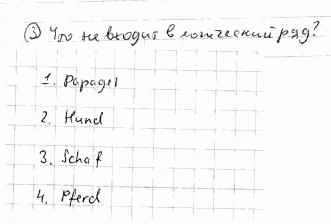 ③ Что не входит в логический ряд?
1. Papagei
2. Hund
3. Schaf
4. Pferd